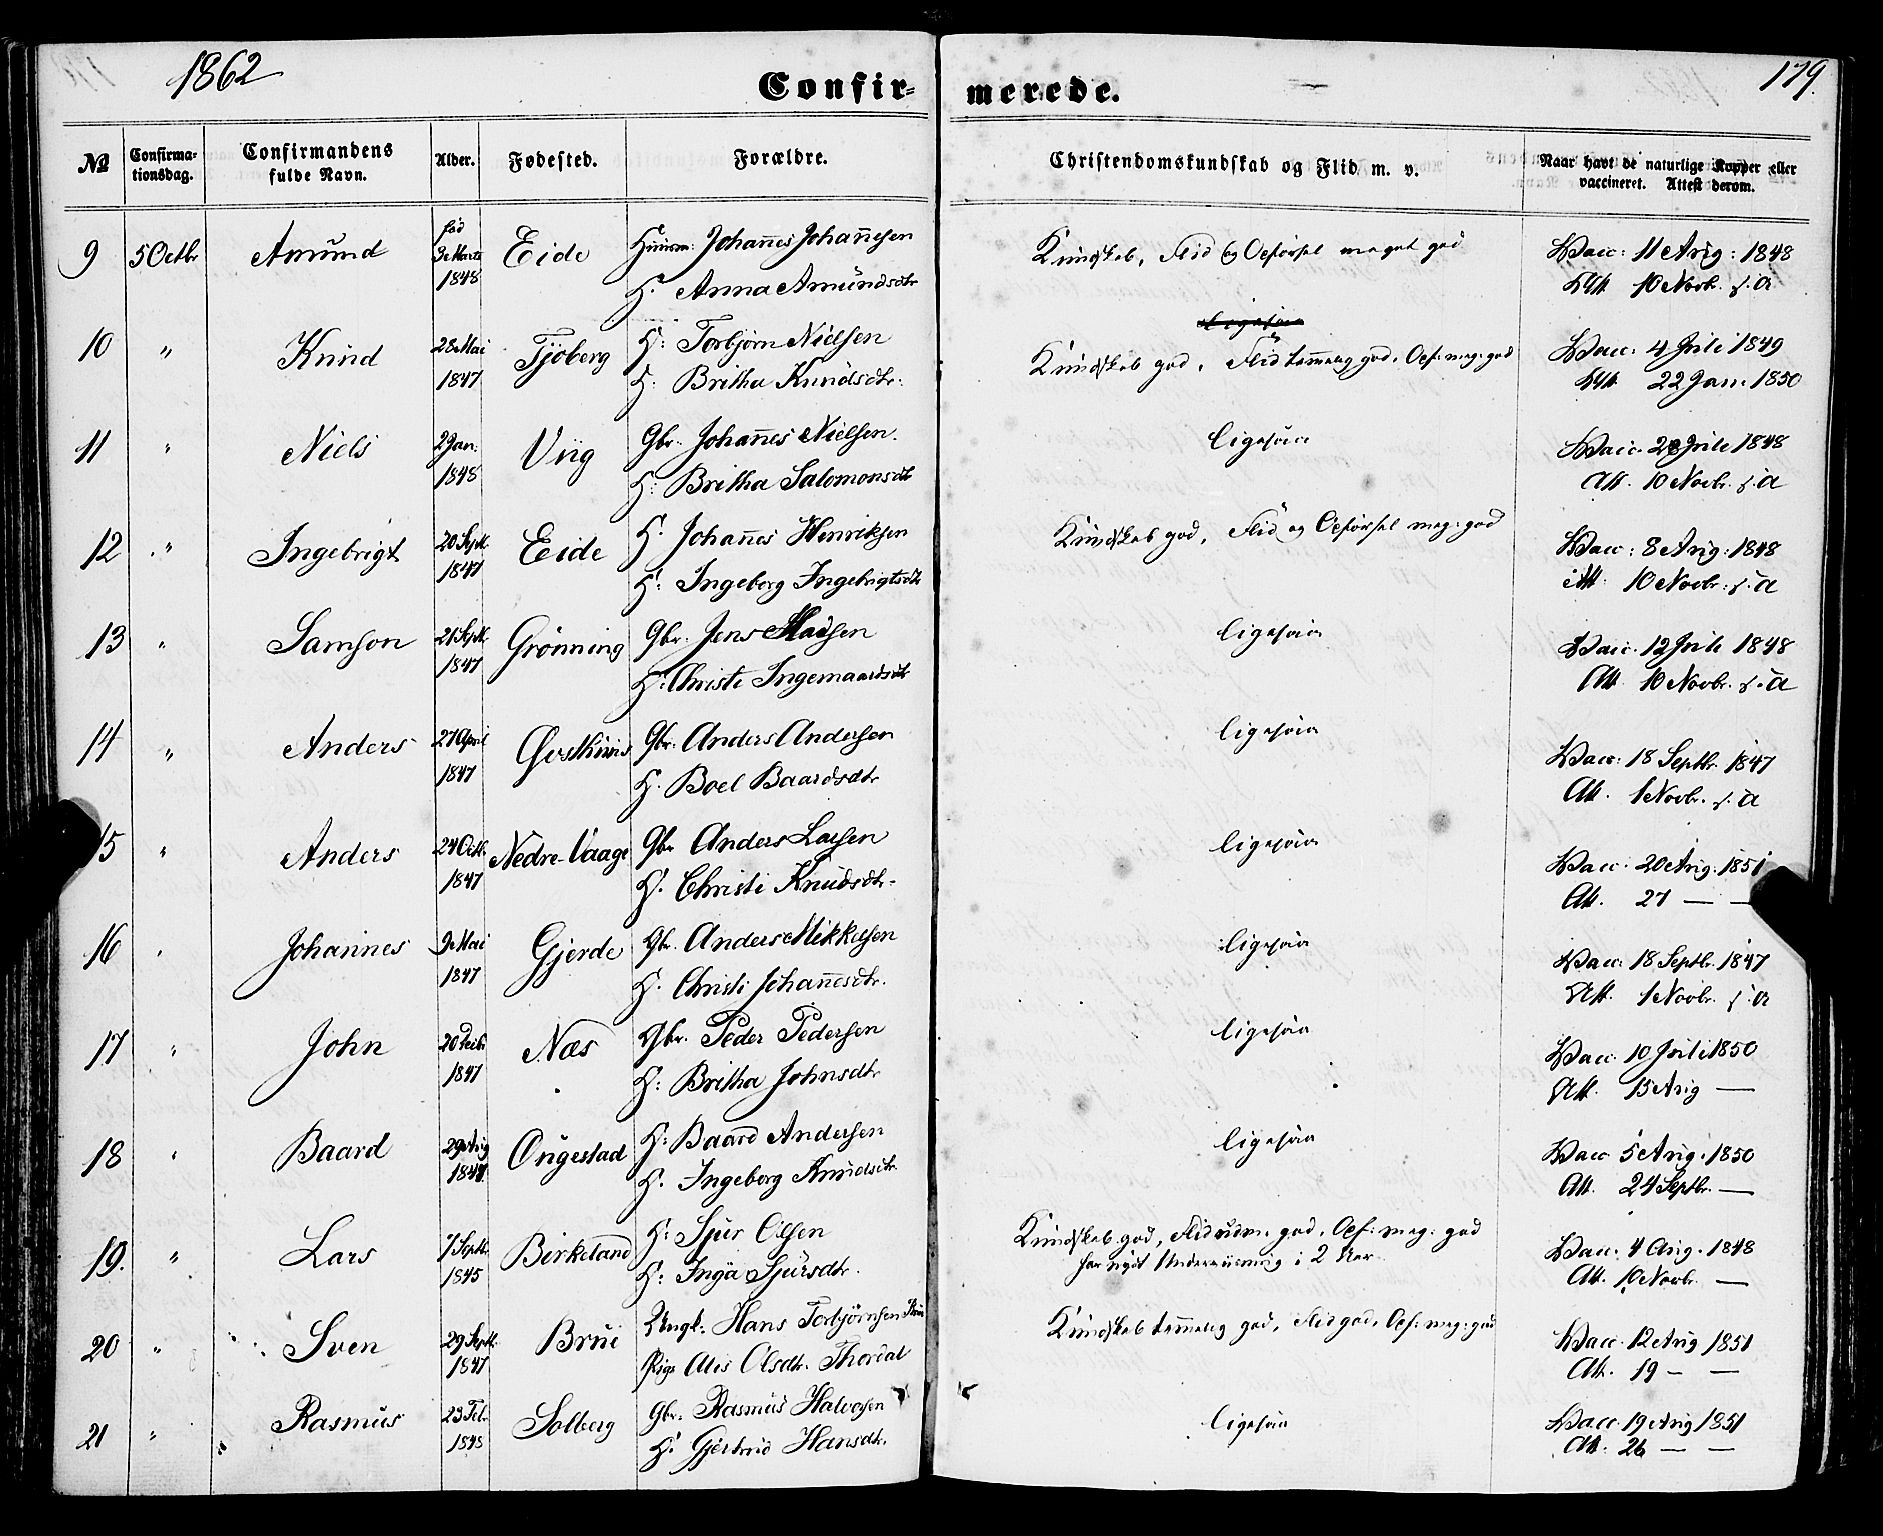 1862
Confir-
merede.
179.
№
Confirma-
tionsdag.
Confirmandens
fulde Navn.
Alder.
Fødested.
Forældre.
Christendomskundskab og Flid m. v.
Naar havt de naturlige Kopper eller
vaccineret. Attest derom.
9 5 Octbr Amund fød 3 Marts 1848 Eide Huusm: Johannes Johannesen
H. Anna Amundsdtr
Kundskab, Flid og Opførsel meget god
Vacc: 11 Aug: 1848
Att 10 Novb. s. A
10 " Knud 28 Mai 1847 Tjöberg H: Torbjørn Nielsen
H: Britha Knudsdtr:
ligesaa
Kundskab god, Flid temmelig god, Opf: meg: god
Vacc: 4 Juli 1849
Att 22 Jan. 1850
11 " Niels 2 Jan: 1848 Viig Gbr: Johannes Nielsen.
H: Britha Salomonsdtr
ligesaa
Vacc. 28 Juli 1848
Att. 10 Novbr. s. A
12 " Ingebrigt 20 Septb. 1847 Eide H. Johannes Henriksen
H: Ingeborg Ingebrigtsdtr
Kundskab god, Flid og Opførsel meg: god
Vacc: 8 Aug: 1848
Att. 10 Novbr: s. A
13 " Samson 21 Septb. 1847 Grönning Gbr. Jens
H: Christi Ingemaardsdtr
ligesaa
Vacc. 12 Juli 1848
Att 10 Novbr. s. A
14 " Anders 27 April 1847 Gbr: Anders Andersen
H. Boel Baardsdtr
ligesaa
Vacc: 18 Septbr. 1847
Att. 1 Novbr. s. A
15 " Anders 24 Octb. 1847 Nedre-Vaage Gbr Anders Larsen
H. Christi Knudsdtr.
ligesaa
Vacc: 20 Aug: 1851
Att. 27 — —
16 " Johannes 9 Mai 1847 Gjerde Gbr. Anders Mikkelsen
H. Christi Johannesdtr.
ligesaa
Vacc: 18 Septbr. 1847
Att. 1 Novbr. s. A
17 " John 20 1847 Næs Gbr. Peder Pedersen
H: Britha Johnsdtr
ligesaa
Vacc. 10 Juli 1850
Att. 15 Aug —
18 " Baard 29 Aug 1847 Ongestad H: Baard Andersen
H. Ingeborg Knudsdtr.
ligesaa
Vacc 5 Aug. 1850
Att. 24 Septbr. —
19. " Lars 7 Septb. 1845 Birkeland H: Sjur Olsen
H: Inga Sjursdtr.
Kundskab god, Flid udm. god, Opf: meg: god
har nydt Underviisning i 2 Aar
Vacc. 4 Aug. 1848
Att. 10 Novbr. —
20 " Sven 29 Septb. 1847 Brue Ungk: Hans Torbjørnsen
Pige Olsdtr. Thordal
Kundskab temmelig god, Flid god, Opf: meg: god
Vacc. 12 Aug 1851
Att. 19 — —
21 " Rasmus 23 Feb. 1848 Solberg Gbr: Rasmus Halvorsen
H: Gjertrud Hansdtr.
ligesaa
Vacc. 19 Aug 1851
Att: 26 — —